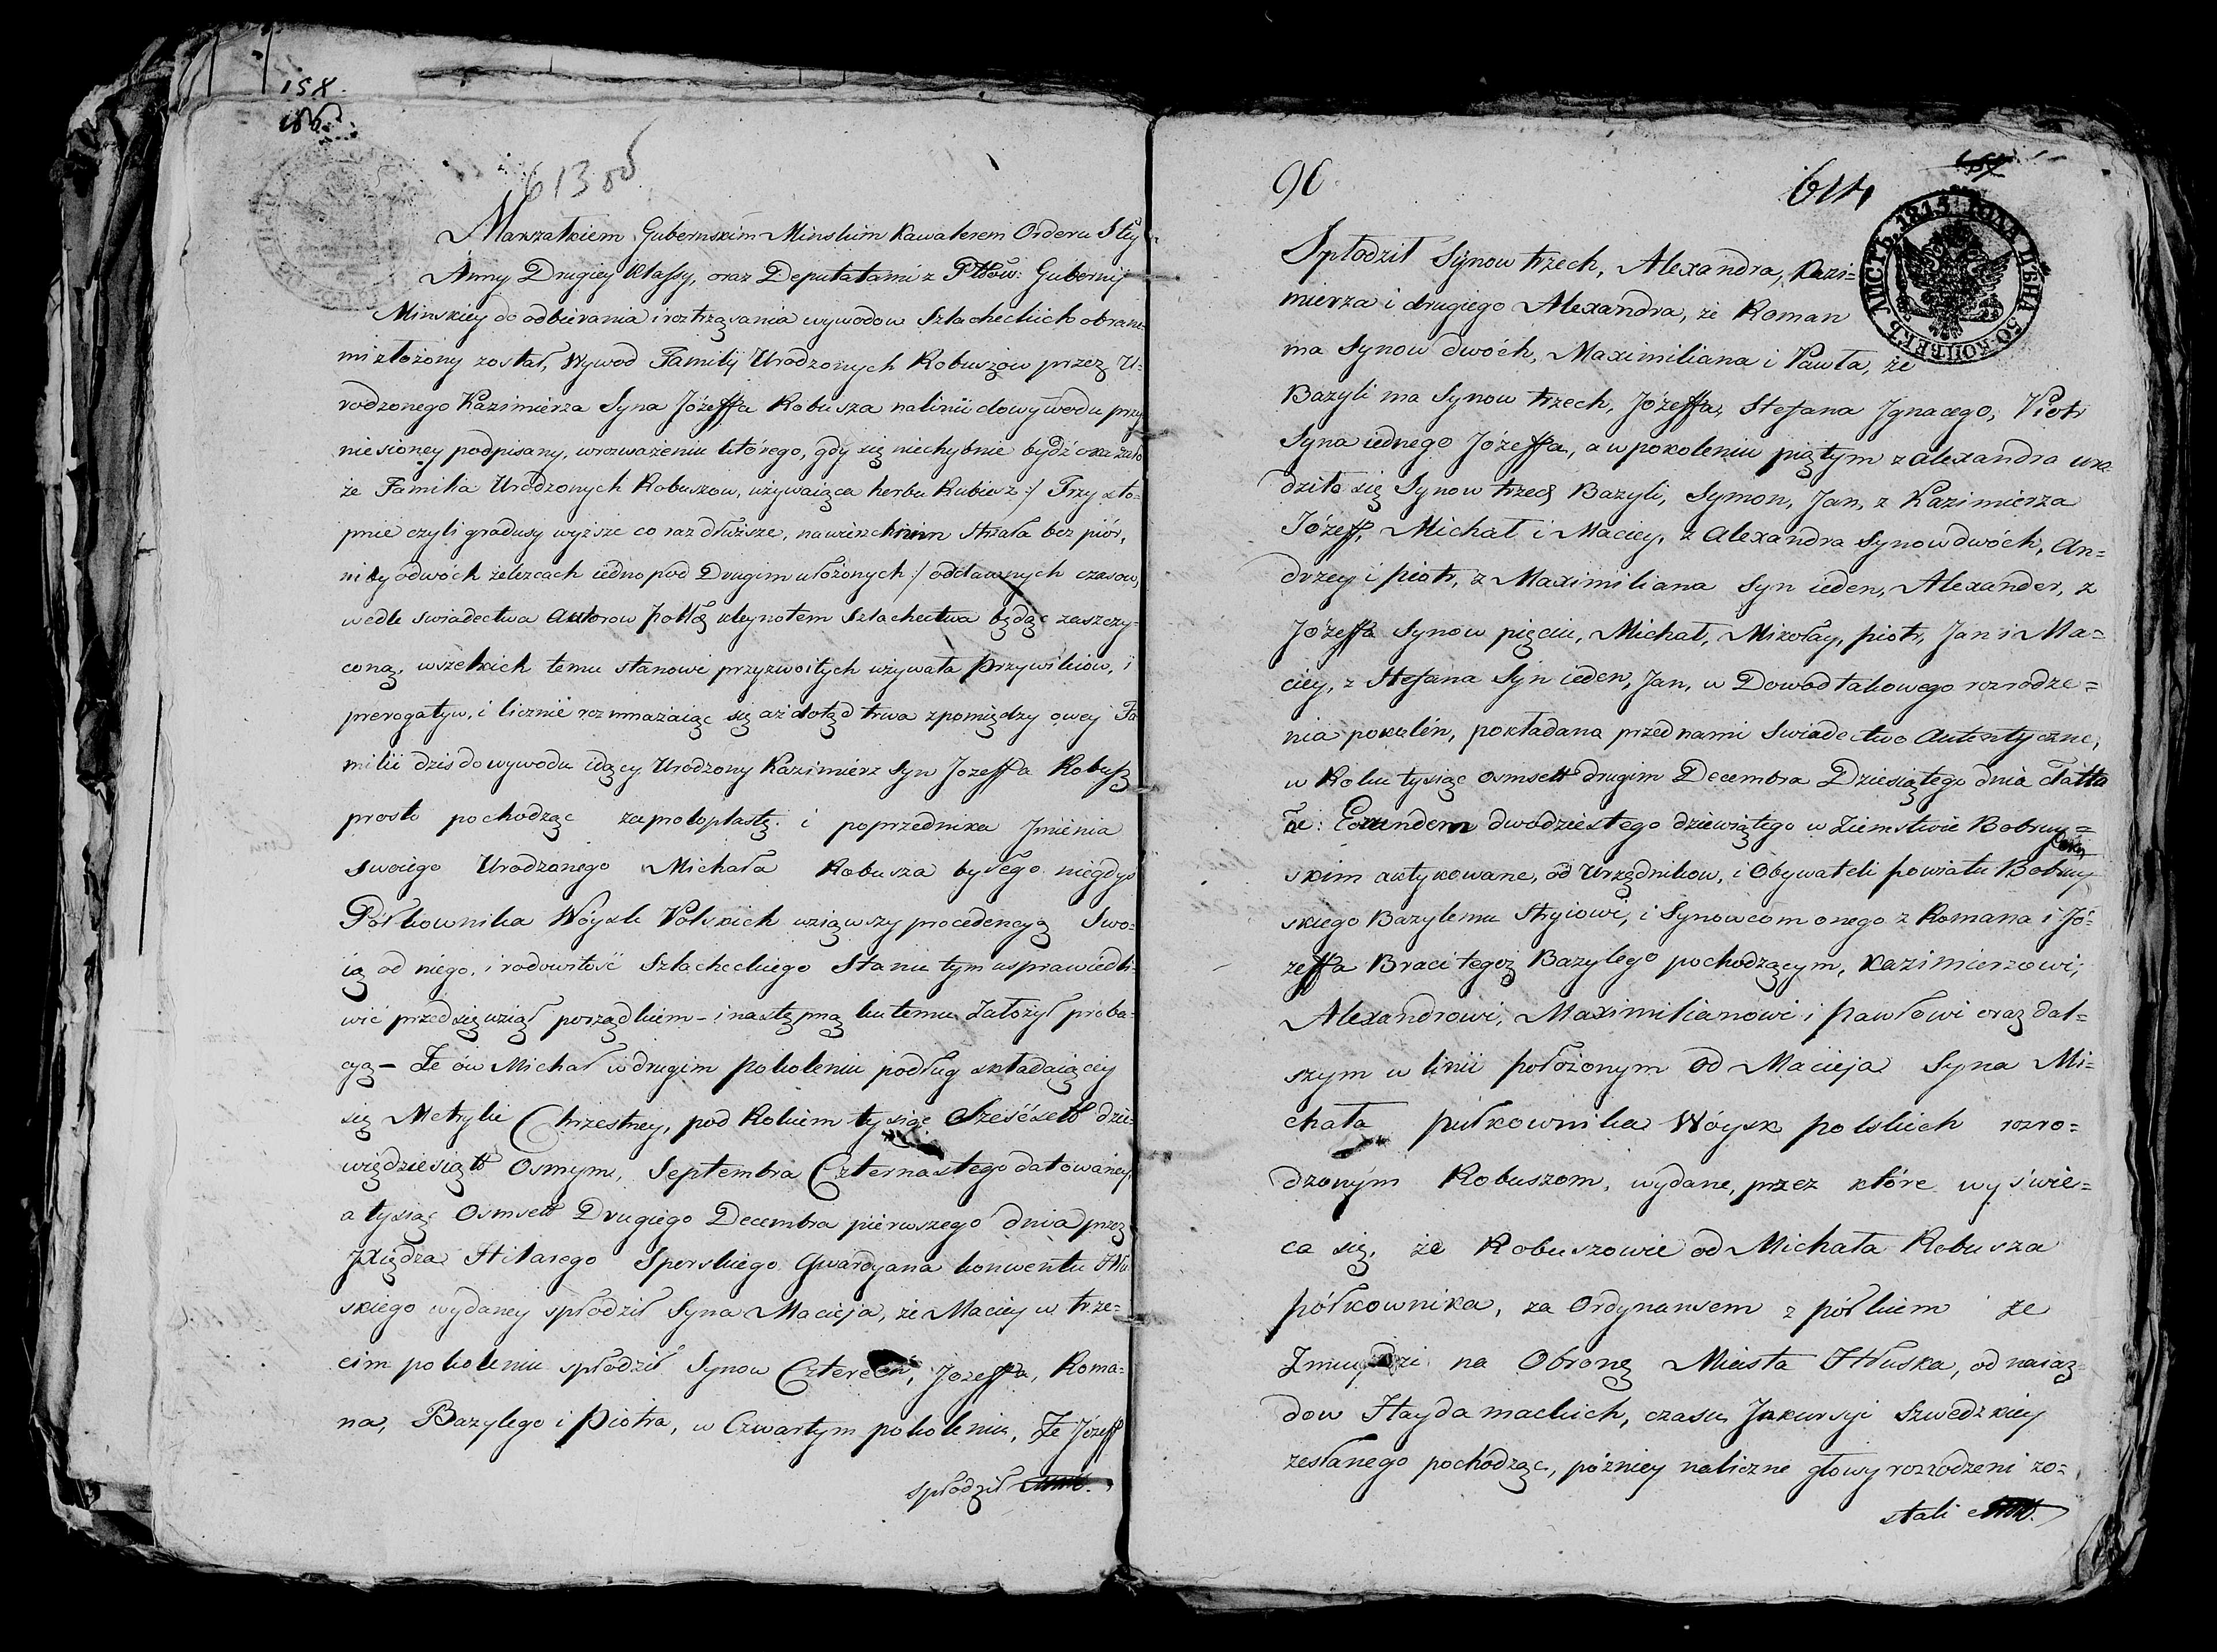 158.
613 об
Marszałkiem Gubernskim Minskim Kawalerem Orderu Stey
Anny Drugiey Klassy, oraz Deputatami z Pttów: Gubernij
Minskiey do odbierania i roztrząsania wywodow Szlacheckich obrane-
mi złożony został, Wywod Familij Urodzonych Robuszow przez U-
rodzonego Kazimierza Syna Józeffa Robusza na linii do wywodu przy
niesioney podpisany, w rozważeniu którego, gdy się niechybnie bydź okazało
że Familia Urodzonych Robuszow, używaiąca herbu Kubiesz :/ Trzy sto-
pnie czyli gradusy wyższe co raz dłuższe, na wierzchnim strzała bez piór,
niby o dwóch żelezcach iedno pod Drugim ułożonych :/ od dawnych czasow,
wedle swiadectwa Autorow Polsk kleynotem Szlachectwa będąc zaszczy-
coną, wszelkich temu stanowi przyzwoitych używała Przywiliow, i
prerogatyw, i licznie rozmnażaiąc się aż dotąd trwa z pomiędzy owey Fa
milii dzis do wywodu idący Urodzony Kazimierz Syn Jozeffa Robusz
prosto pochodząc za protoplastę i poprzednika Jmienia
swoiego Urodzonego Michała Robusza byłego niegdyś
Półkownika Wóysk Polskich wziąwszy procedencyą Swo-
ią od niego, i rodowitość Szlacheckiego Stanu tym usprawiedli-
wić przedsięwziął porządkiem – i następną ku temu Założył proba-
cyą – Że ów Michał w drugim pokoleniu podług składaiącey
się Metryki Chrzestney, pod Rokiem tysiąc Sześćsett dzie-
więdziesiątt Osmym, Septembra Czternastego datowaney,
a tysiąc Osmsett Drugiego Decembra pierwszego dnia przez
Jxiędza Hilarego Sperskiego Gwardyana konwentu Hłu
skiego wydaney spłodził Syna Macieja, że Maciey w trze-
cim pokoleniu spłodził Synow Czterech, Jozeffa, Roma-
na, Bazylego i Piotra, w Czwartym pokoleniu, Że Józeff
spłodził
96
614
ЛИСТЪ. 1815 ГОДА ЦѢНА 50 КОПѢЕКЪ
Spłodził Synow trzech, Alexandra, Kazi=
mierza i drugiego Alexandra, że Roman
ma Synow dwóch, Maximiliana i Pawła, że
Bazyli ma Synow trzech, Józeffa, Stefana Jgnacego, Piotr
Syna iednego Józeffa, a w pokoleniu piątym z Alexandra uro
dziło się Synow trzech Bazyli, Symon, Jan, z Kazimierza
Józeff, Michał i Maciey, z Alexandra Synow dwóch, An=
drzey i Piotr, z Maximiliana Syn ieden, Alexander, z
Józeffa Synow pięciu, Michał, Mikołay, Piotr, Jan i Ma=
ciey, z Stefana Syn ieden, Jan, w Dowod takowego rozrodze=
nia pokoleń, pokładana przed nami Swiadectwo Autentyczne,
w Roku tysiąc osmsett drugim Decembra Dziesiątego dnia Datto
Eiusdem dwodziestego dziewiątego w Ziemstwie Bobruy=
skim aktykowane, od Urzędnikow, i Obywateli powiatu Bobruy
skiego Bazylemu Stryiowi, i Synowcom onego z Romana i Jó-
zeffa Braci tegoż Bazylego pochodzącym, Kazimierzowi,
Alexandrowi, Maximilianowi i Pawłowi oraz dal=
szym w linii położonym od Macieja Syna Mi=
chała pułkownika Wóysk polskich rozro=
dzonym Robuszom, wydane, przez które wyświe=
ca się, że Robuszowie od Michała Robusza
półkownika, za Ordynansem z półkiem ze
Zmuydzi na Obronę Miasta Hłuska, od naiaz
dow Haydamackich, czasu Jnkursyi Szwedzkiey
zesłanego pochodząc, pózniey na liczne głowy rozrodzeni zo=
stali